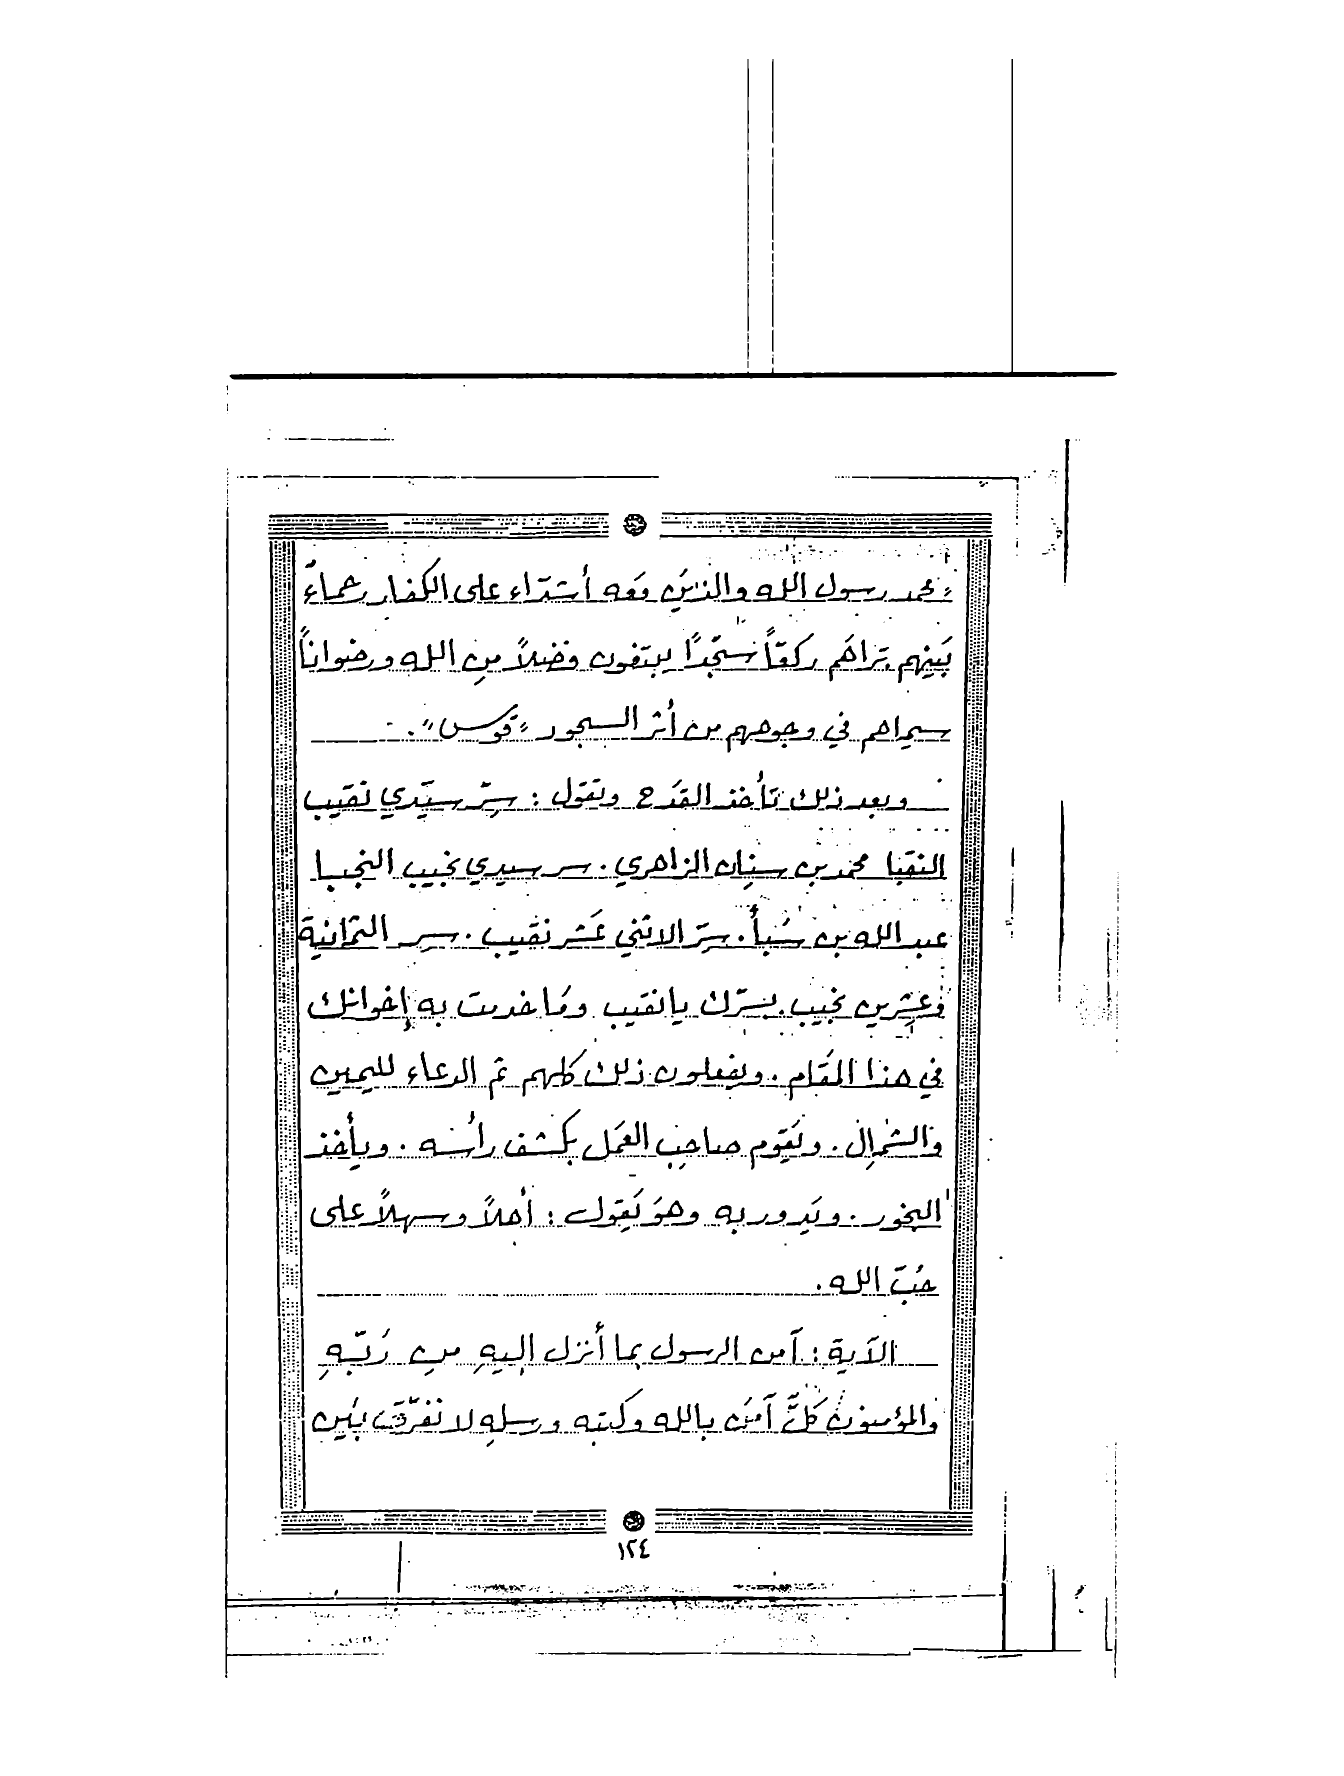 "محمد رسول الله والذين مَعَه أشدّاء على الكفار رحماءُ
بَينهم تراهَم ركعّاً سجّدًا يبتغون فضلاً منِ الله ورضواناً
سيماهم في وجوههم من أثر السجود "قوس".
وبعد ذلك تأخذ القدَح وتقول : سِرّ سيّدي نقيب
النقبا محمد بن سنان الزاهري . سر سيدي نجيب النجبا
عبد الله بن سُبأ . سِرّ الاثني عَشر نقيب . سِر الثمانية
وعشرين نجيب . بسرّك يا نقيب ومَا خدمت به إخوانك
في هذا المقَام . ويفعلون ذلك كلهم ثم الدعاء لليمين
والشمال . ويَقوم صاحب العمَل بكشف رأسَه . ويأخذ
البخور . ويَدور به وهوَ يَقول : أهلاً وسهلاً على
حُبّ الله .
الآية : آمن الرسول بما أُنزل إليهِ منِ رَبّهِ
والمؤمنونَ كلَّ آمَن بالله وكتبه ورسلهِ لا نفَرّق بَين
١٢٤